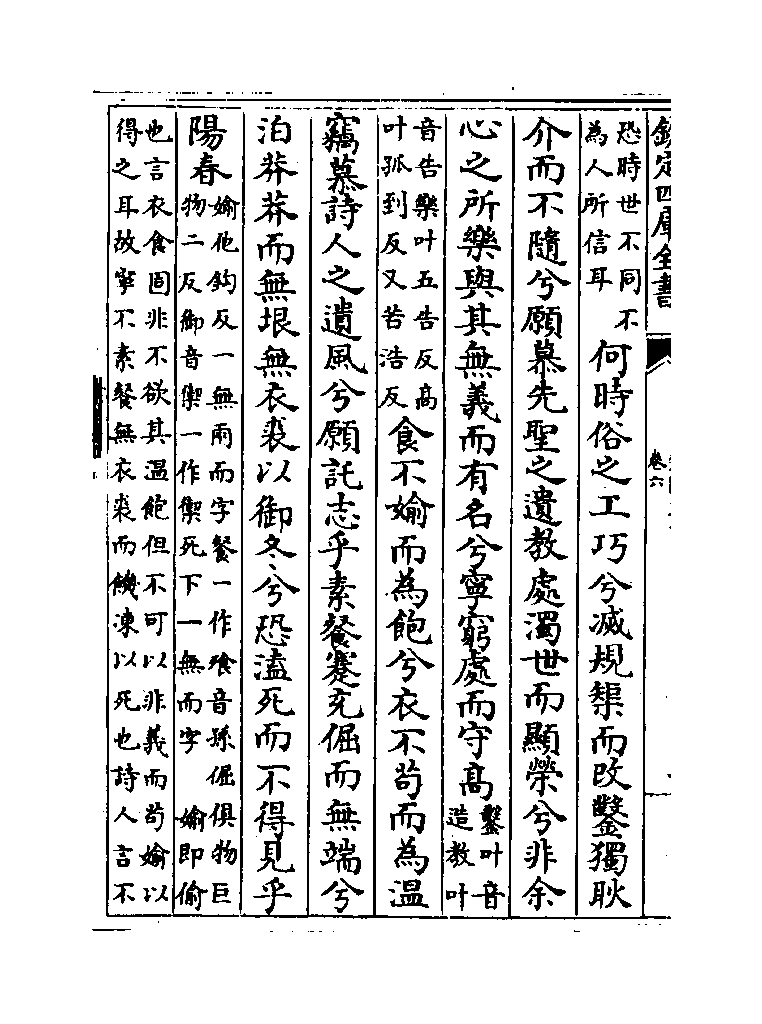 欽定四庫全書
卷六
恐時世不同不
為人所信耳
何時俗之工巧兮滅規榘而改鑿獨耿
介而不隨兮願慕先聖之遺教處濁世而顯榮兮非余
心之所樂與其無義而有名兮寧窮處而守高
鑿叶音
造教叶
音告樂叶五告反高
叶孤到反又苦浩反
食不媮而為飽兮衣不苟而為温
竊慕詩人之遺風兮願託志乎素餐蹇充倔而無端兮
泊莽莽而無垠無衣裘以御冬兮恐溘死而不得見乎
陽春
媮他鉤反一無兩而字餐一作飱音孫倔俱物巨
物二反御音禦一作禦死下一無而字 媮即偷
也言衣食固非不欲其温飽但不可以非義而苟媮以
得之耳故寧不素餐無衣裘而饑凍以死也詩人言不